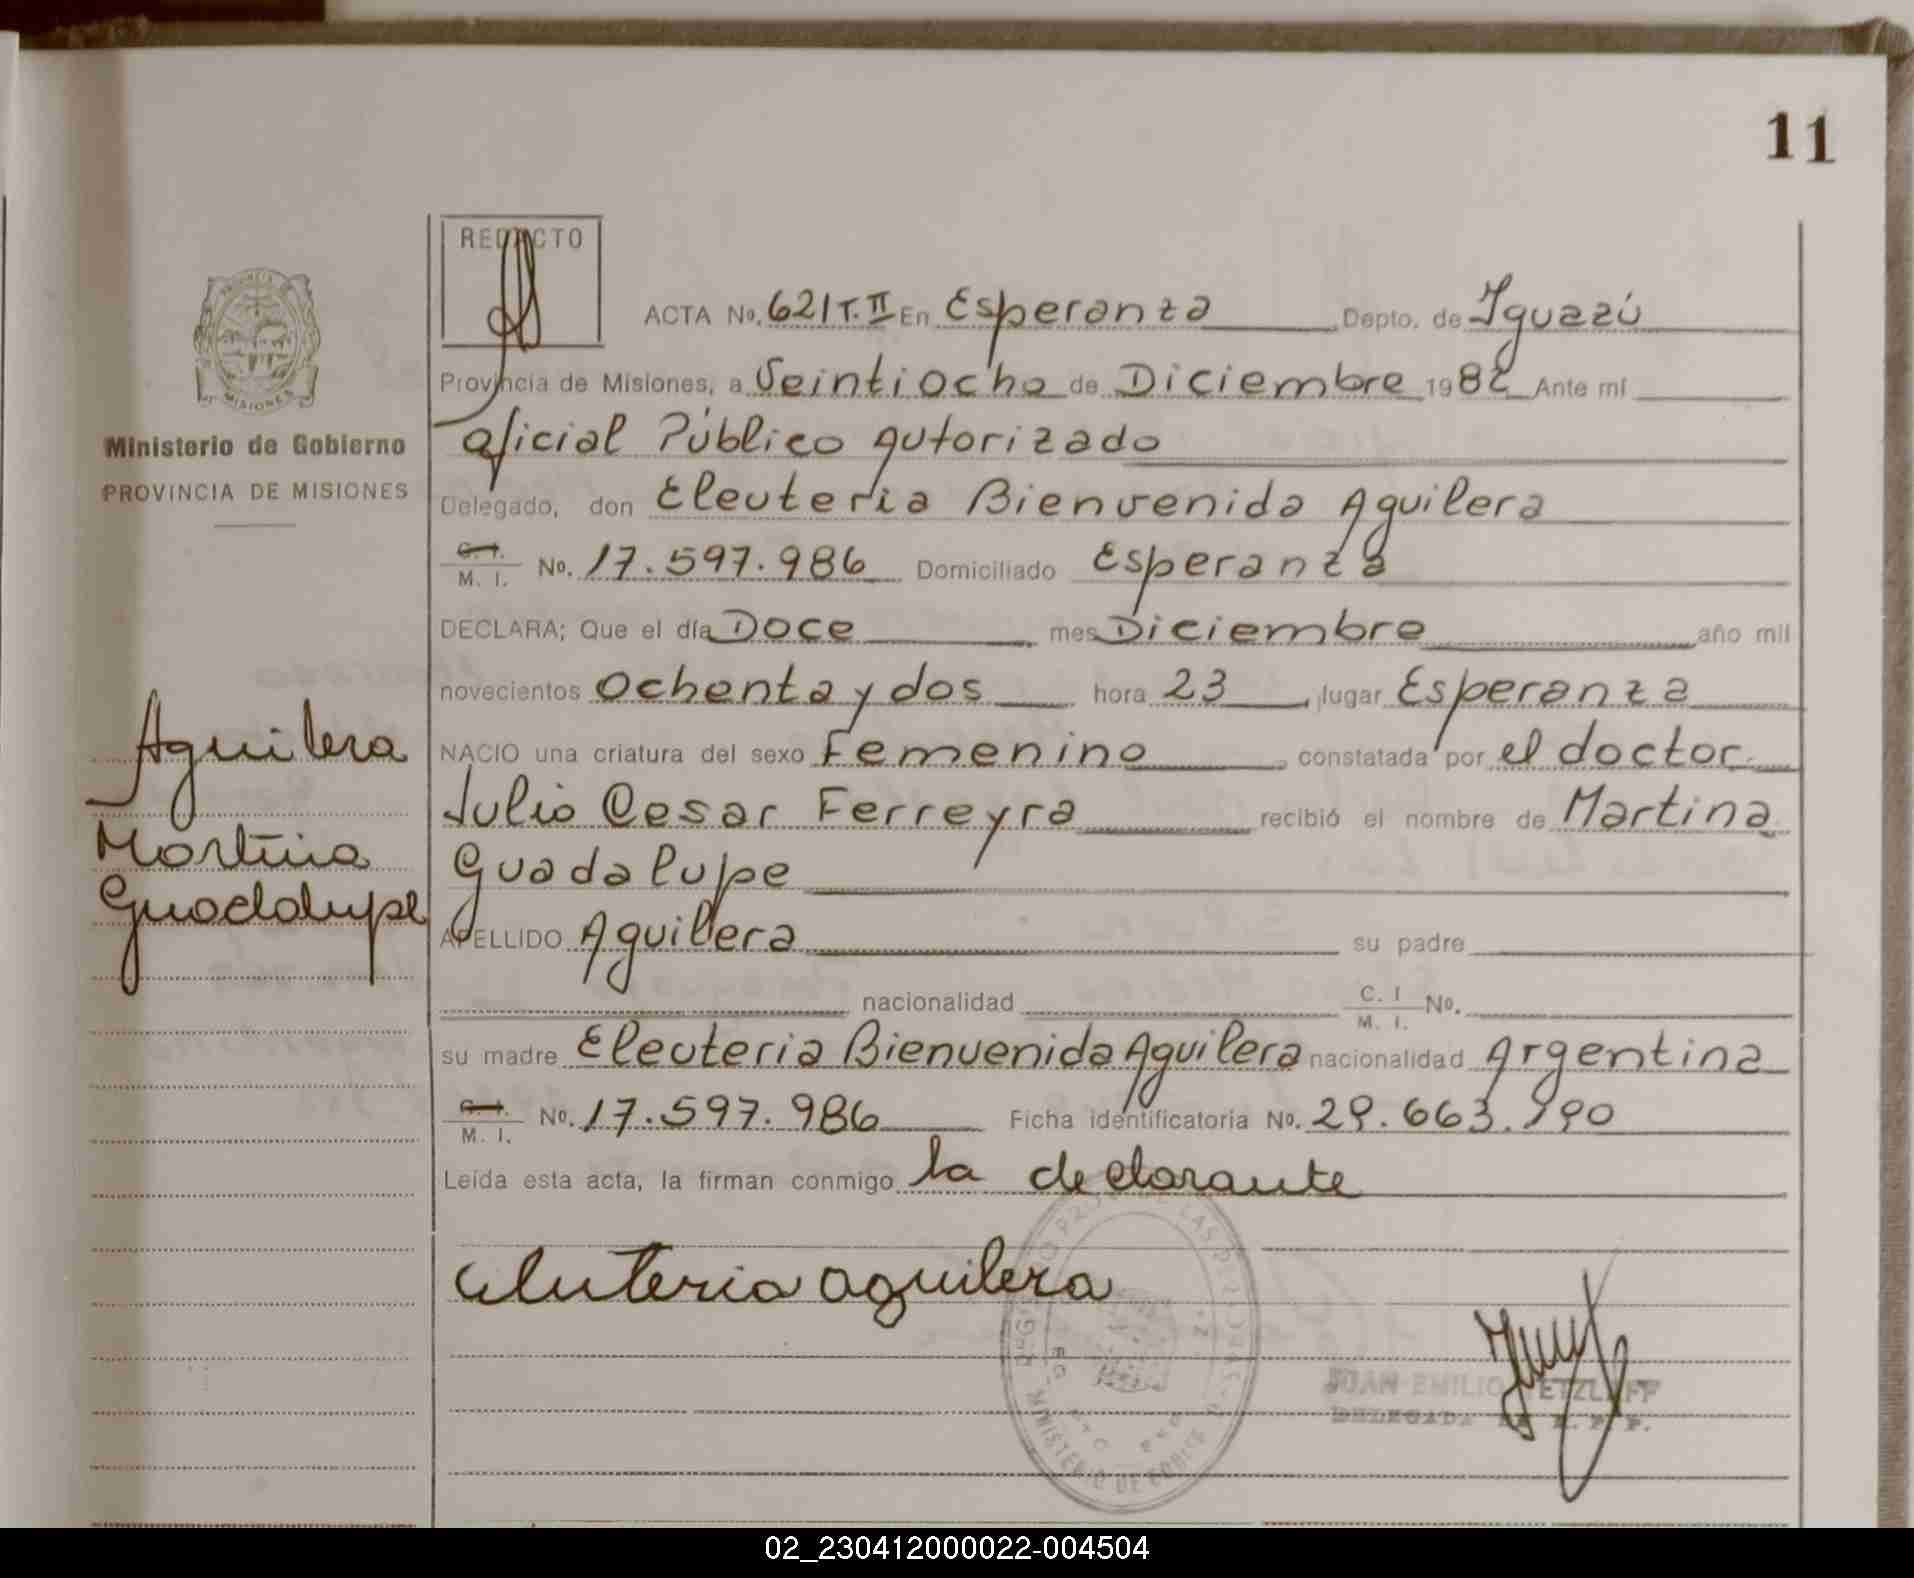 11
REDACTO
ACTA No. 621 T. II En Esperanza Depto. de Iguazú
Provincia de Misiones, a Veintiocho de Diciembre 1982 Ante mí
Oficial Público Autorizado
Ministerio de Gobierno
PROVINCIA DE MISIONES
Delegado, don Eleuteria Bienvenida Aguilera
C. I. M. I. No. 17.597.986 Domiciliado Esperanza
DECLARA; Que el día Doce mes Diciembre año mil
novecientos Ochenta y dos hora 23 , lugar Esperanza
NACIO una criatura del sexo Femenino , constatada por el doctor
Julio Cesar Ferreyra recibió el nombre de Martina
Guadalupe
Aguilera
Martina
Guadalupe
APELLIDO Aguilera su padre
nacionalidad C. I M. I. No.
su madre Eleuteria Bienvenida Aguilera nacionalidad Argentina
C. I. M. I. No. 17.597.986 Ficha identificatoria No. 29.663.190
Leída esta acta, la firman conmigo la declarante
eluteria aguilera
JUAN EMILIO
DELEGADA
MINISTERIO DE
02_230412000022-004504